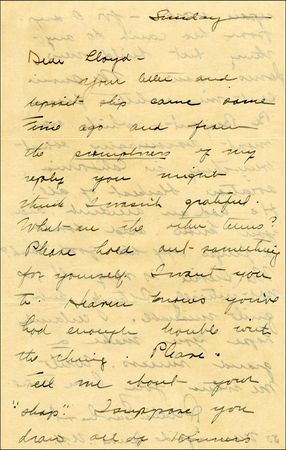 Sunday
Dear Lloyd –
Your letter and
deposit slip came some
time ago and from
the promptness of my
reply you might
think I wasn't grateful.
What are the other terms?
Please hold out something
for yourself. I want you
to. Heaven knows you've
had enough trouble with
the thing. Please.
Tell me about your
"shop". I suppose you
draw all of